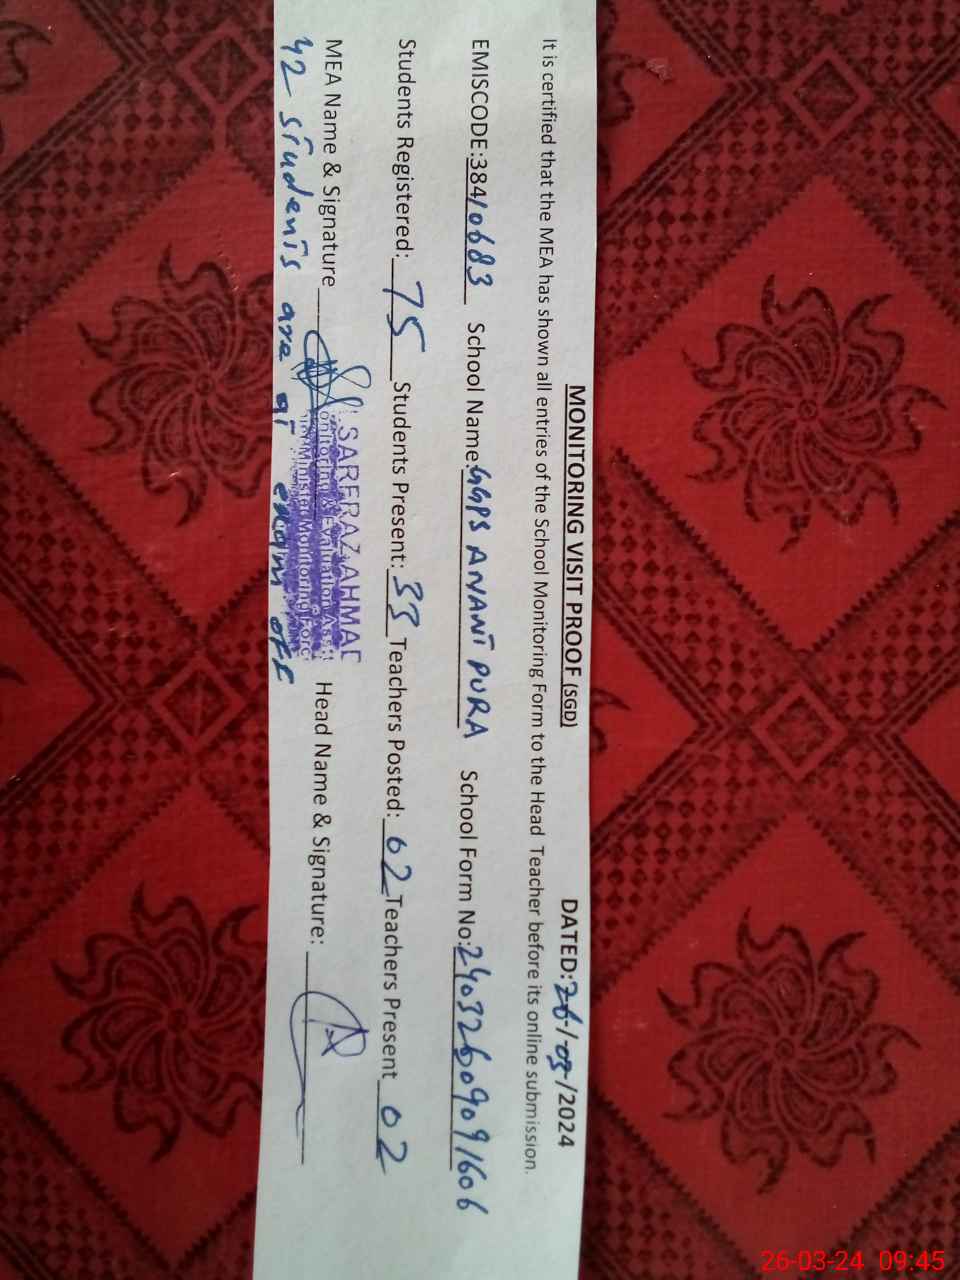 MONITORING VISIT PROOF (SGD) DATED:26/03/2024
It is certified that the MEA has shown all entries of the School Monitoring Form to the Head Teacher before its online submission.
EMISCODE:38410683 School Name:GGPS ANANT PURA School Form No:24032609091606
Students Registered: 75 Students Present: 33 Teachers Posted: 02 Teachers Present 02
MEA Name & Signature SARFRAZ AHMAD Head Name & Signature:
Monitoring & Evaluation Asstt
Chief Minister Monitoring Force
42 students are at exam off
26-03-24 09:45